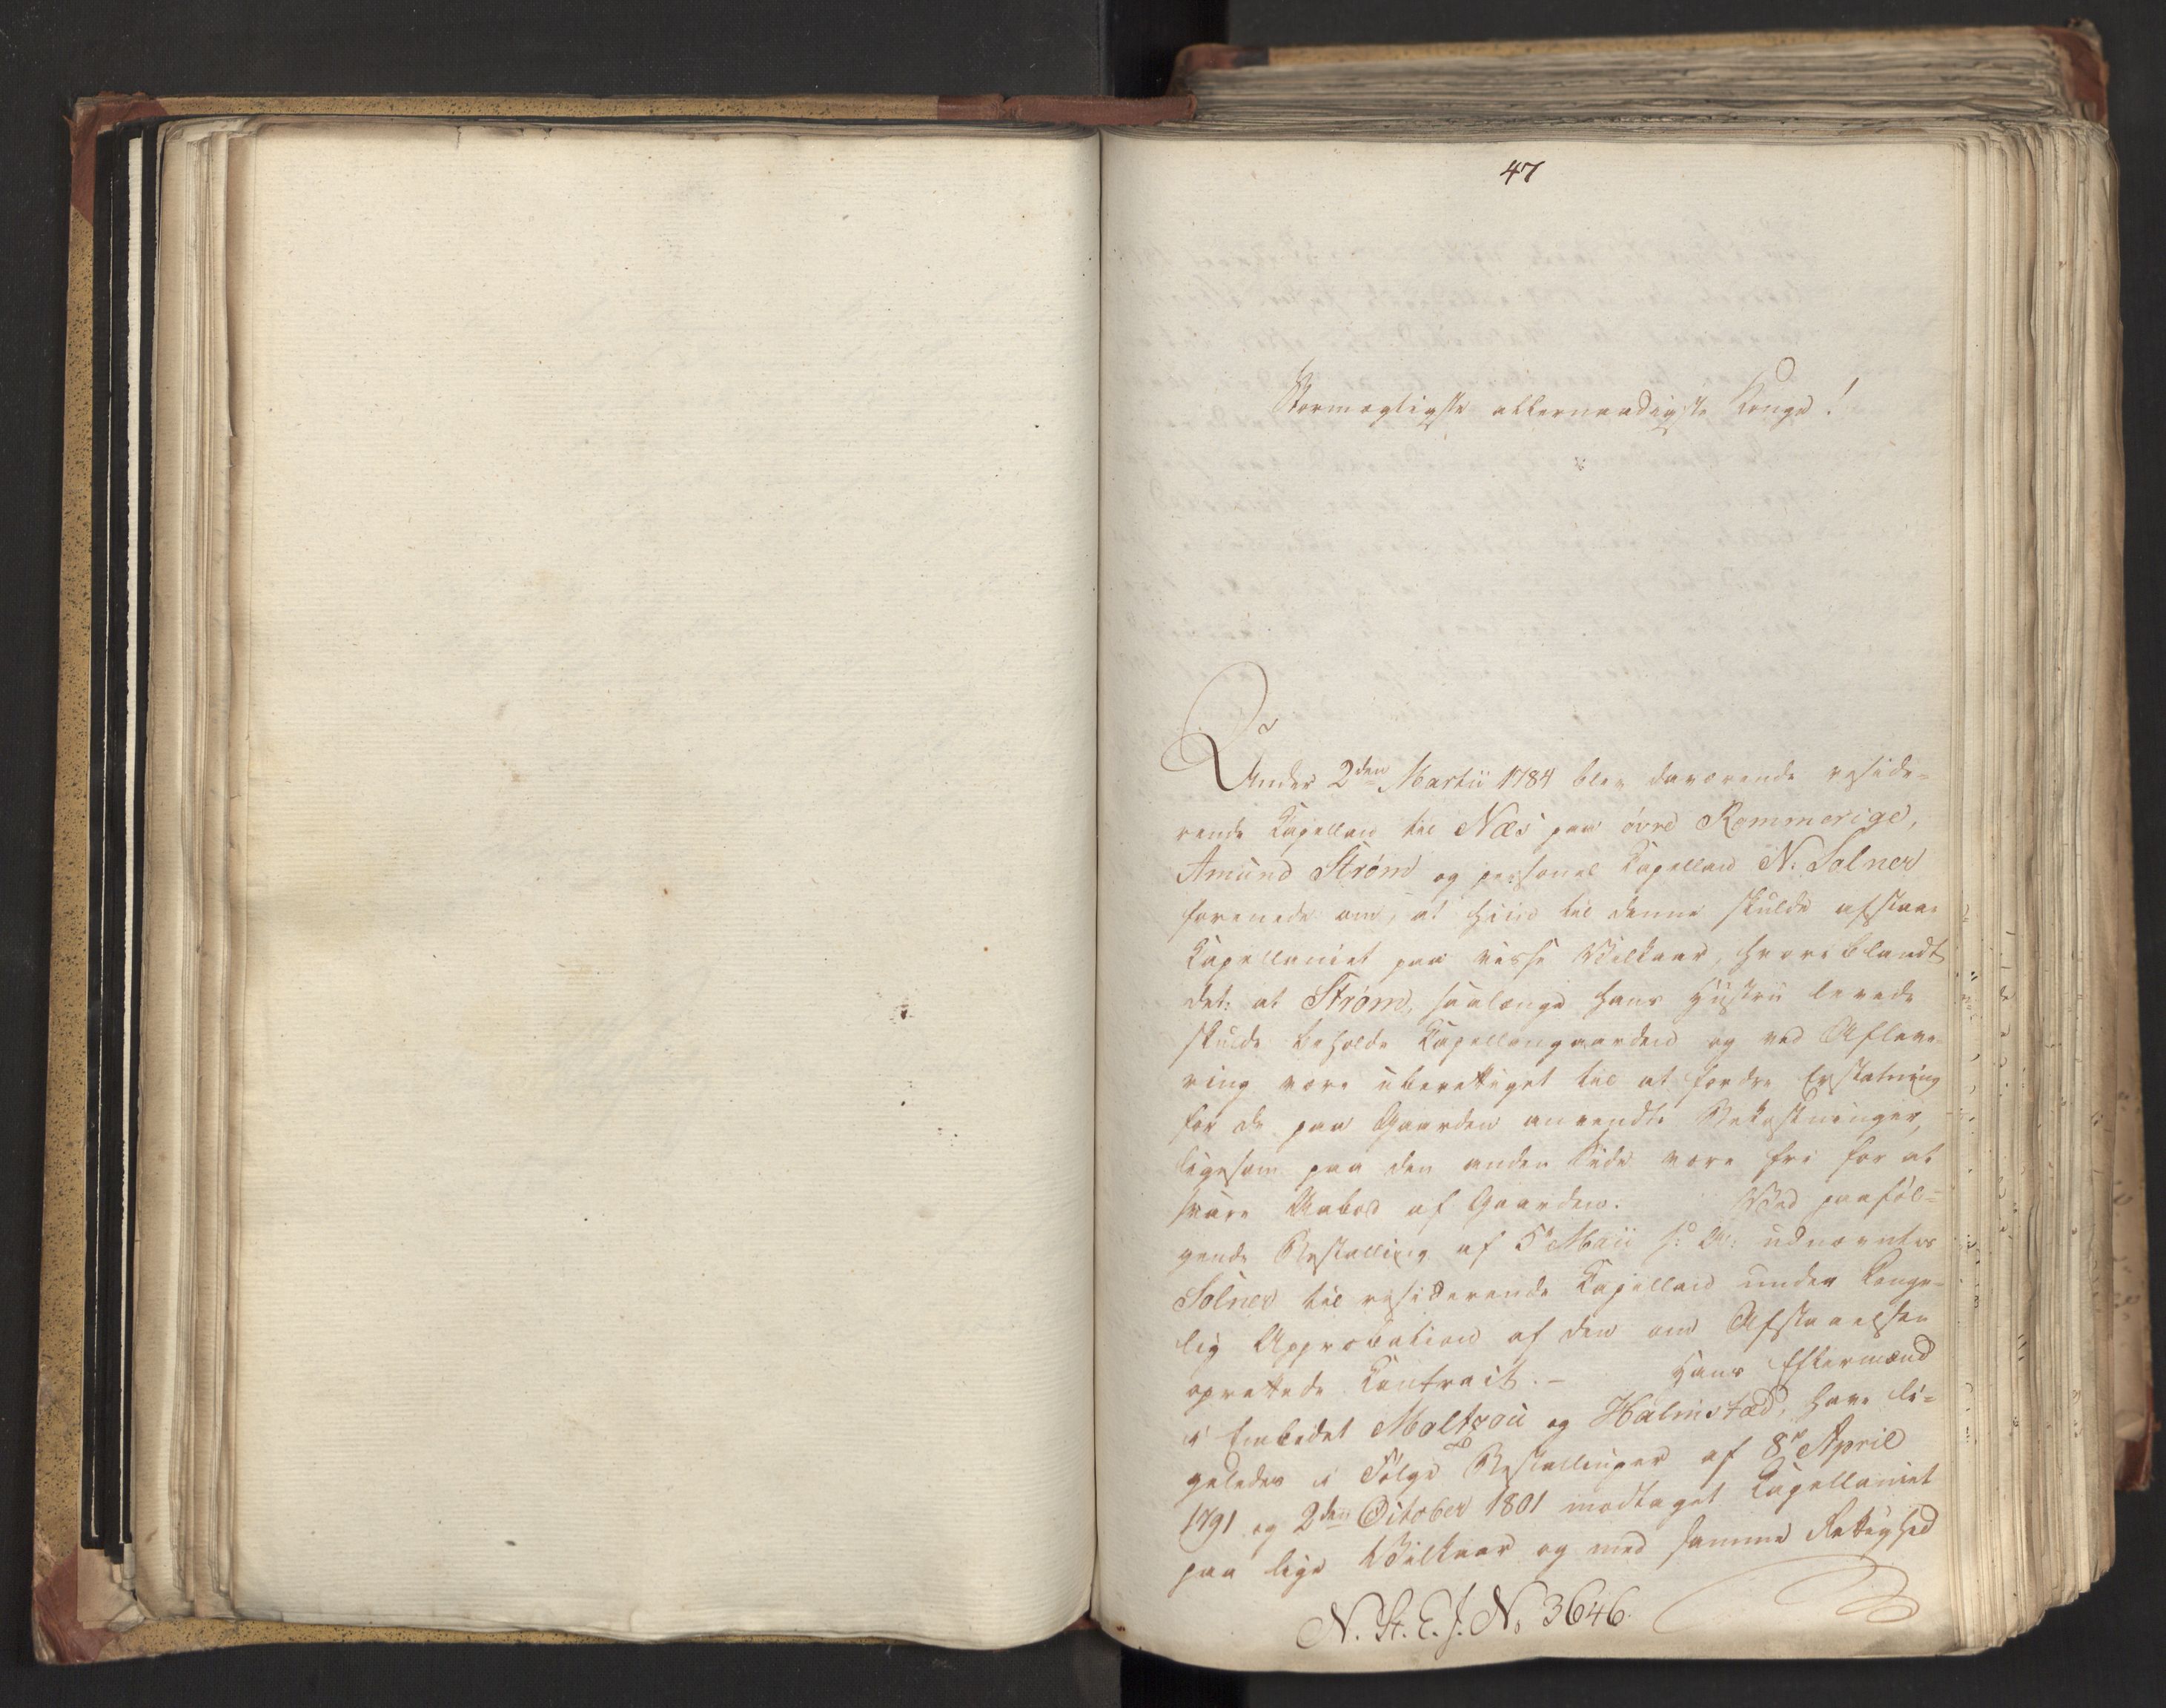 47
Stormægtigste allernaadigste Konge!
Under 2den Martii 1784 blev daværende reside=
rende Kapellan til Næs paa øvre Rommerige,
Amund Strøm og personel Kapellan N. Solner
forenede om, at hiin til denne skulde afstaae
Kapellaniet paa visse Vilkaar, hvoriblandt
det: at Strøm, saalænge hans Hustru levede
skulde beholde Kapellangaarden og ved Afleve=
ring være uberettiget til at fordre Erstatning
for de paa Gaarden anvendte Bekostninger,
ligesom paa den anden Side være fri for at
svare Aabod af Gaarden. Ved paaføl=
gende Bestalling af 5te Maii s: A: udnævntes
Solner til residerende Kapellan under Konge=
lig Approbation af den om Afstaaelsen
oprettede Contract. – Hans Eftermænd
i Embedet Maltzau og Halmstad, have li=
geledes i Følge Bestallinger af 8de April
1791 og 2den October 1801 modtaget Kapellaniet
paa lige Vilkaar og med samme Rettighed
N. St. E. J. No 3646.